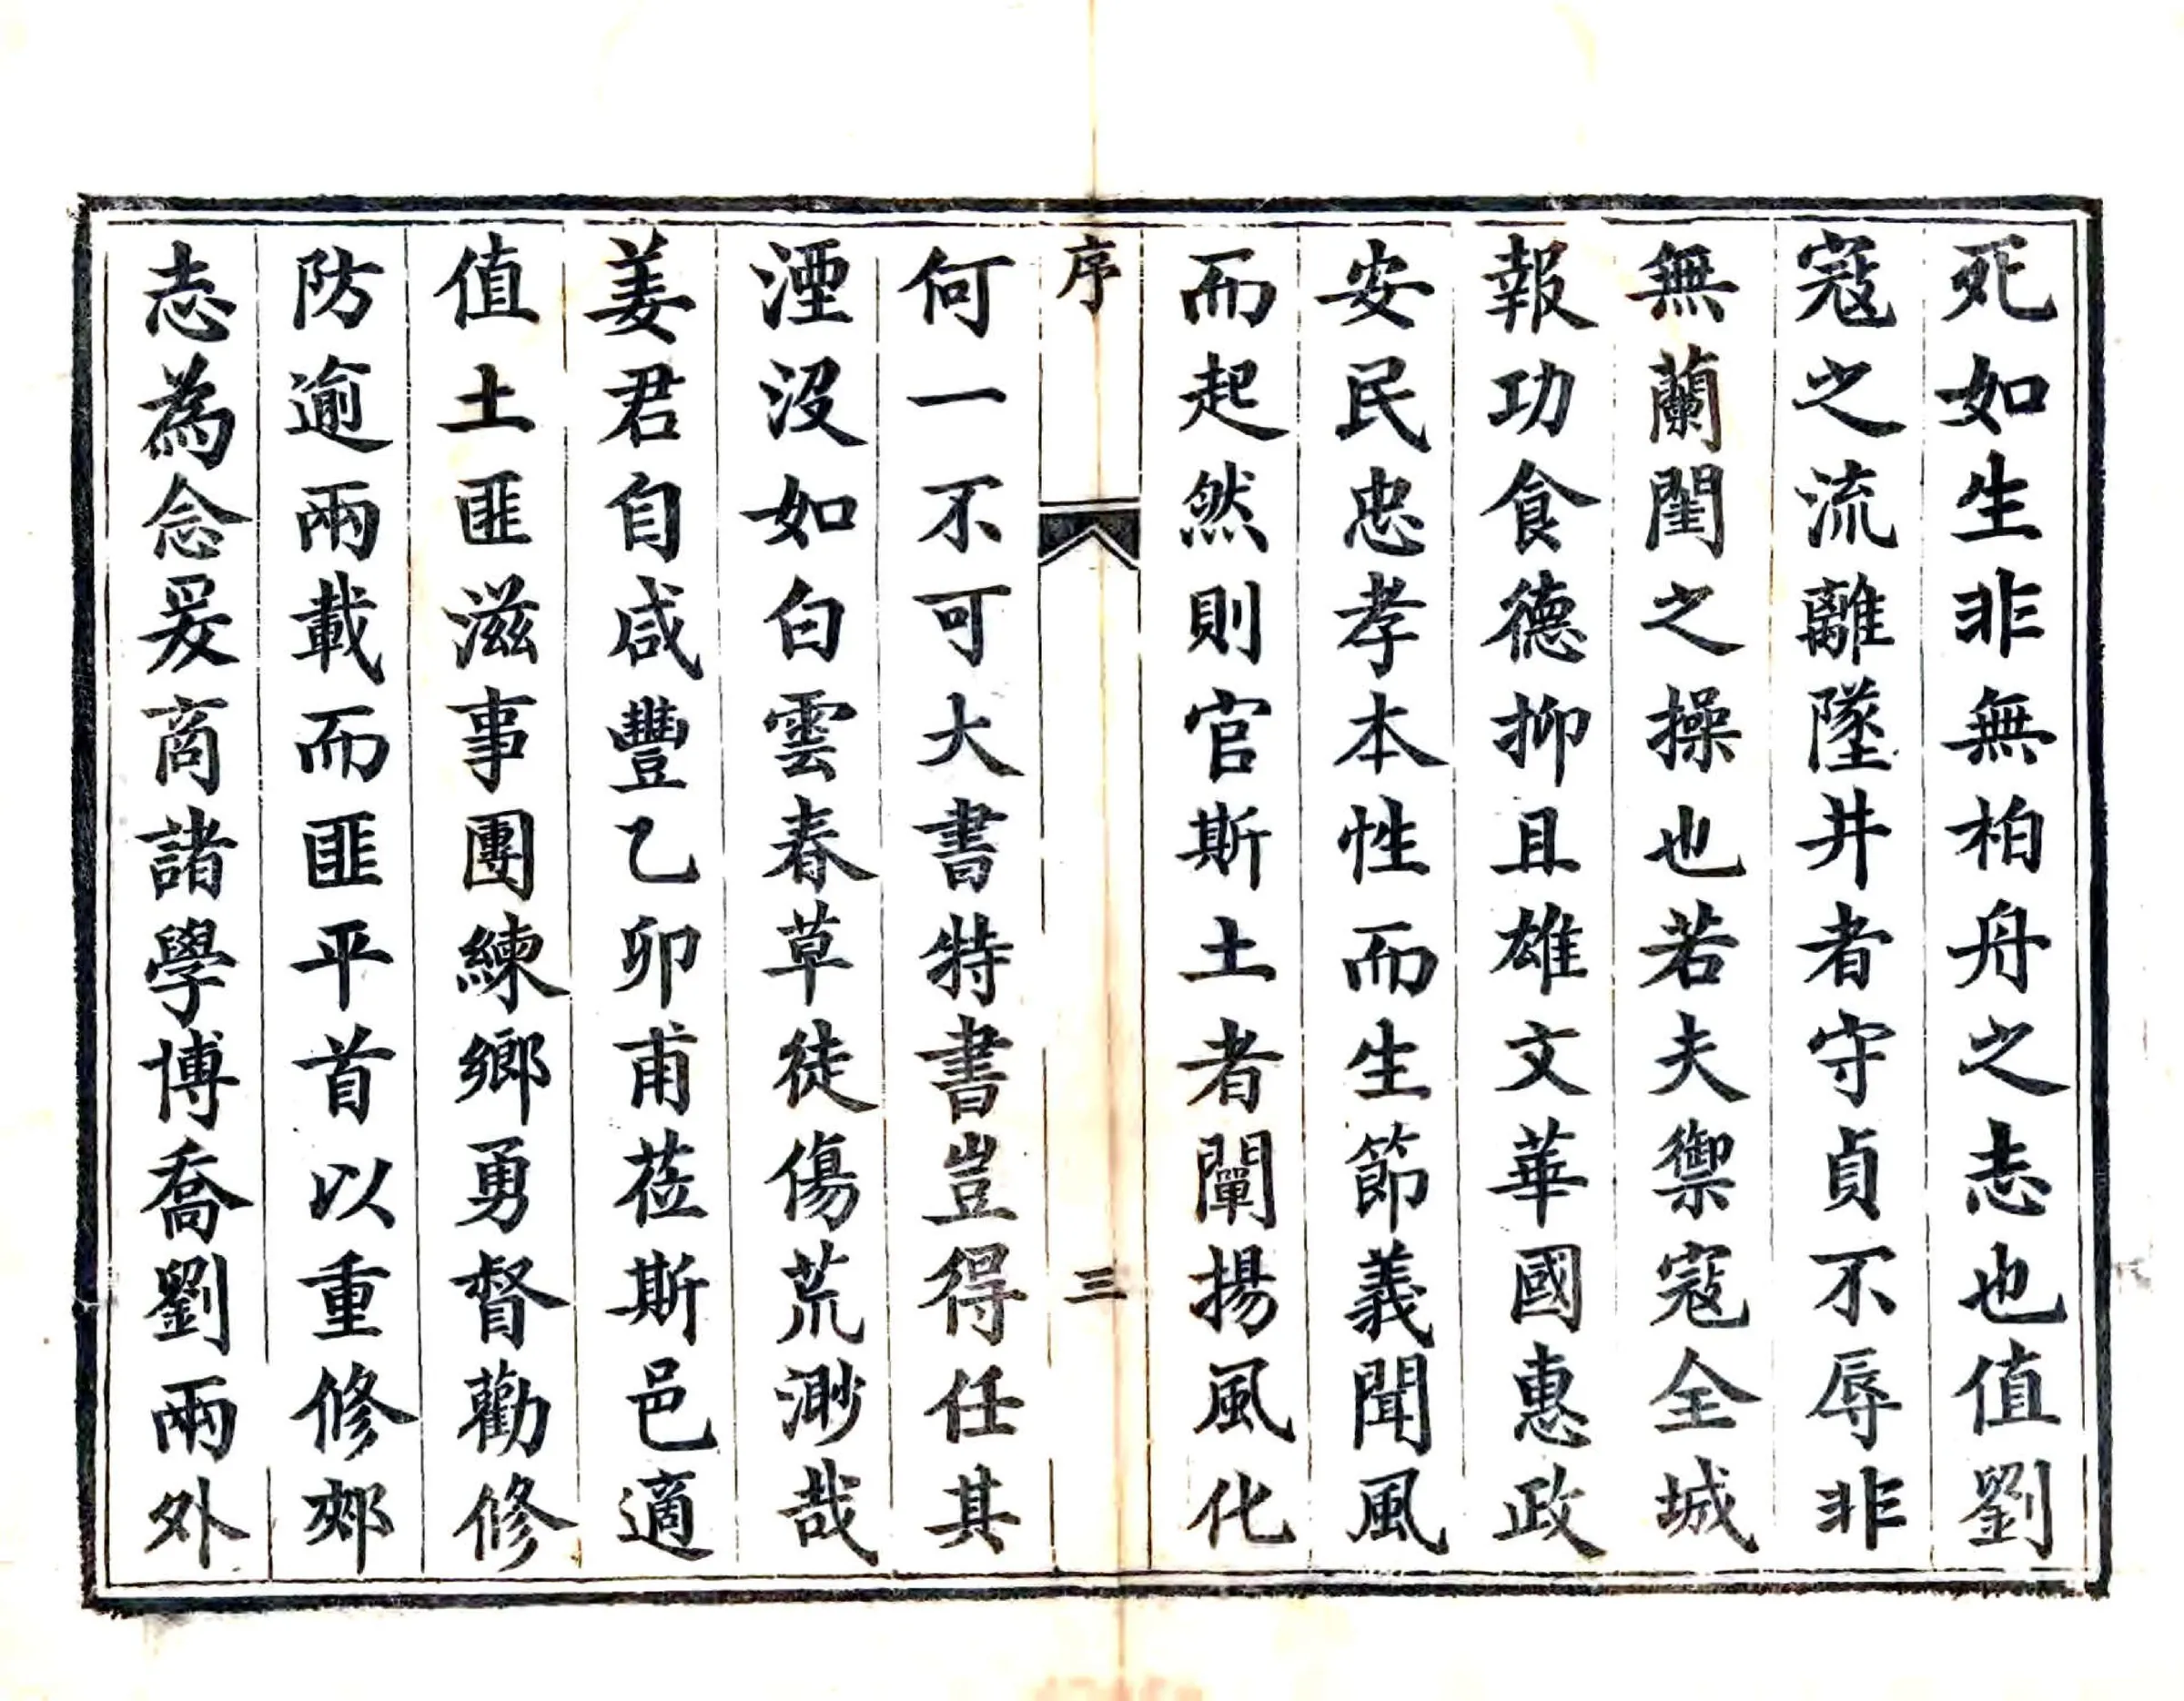 死如生非無柏舟之志也值劉
寇之流離墜井者守貞不辱非
無蘭閨之操也若夫禦寇全城
報功食德抑且雄文華國惠政
安民忠孝本性而生節義聞風
而起然則官斯土者闡揚風化
序 三
何一不可大書特書豈得任其
湮沒如白雲春草徒傷荒渺哉
姜君自咸豐乙卯甫莅斯邑適
值土匪滋事團練鄉勇督勸修
防逾兩載而匪平首以重修郟
志為念爰商諸學博喬劉兩外